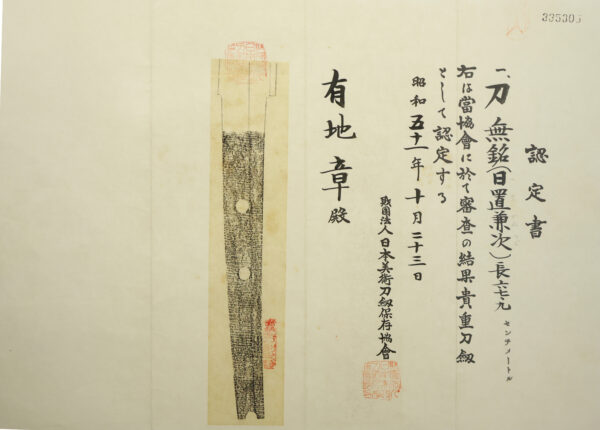 335305
認定書
一、刀 無銘(日置兼次)長六七、九センチメートル
右は當協會に於て審査の結果貴重刀剱
として認定する
昭和五十一年十月二十三日
財団法人日本美術刀剱保存協會
有地章殿